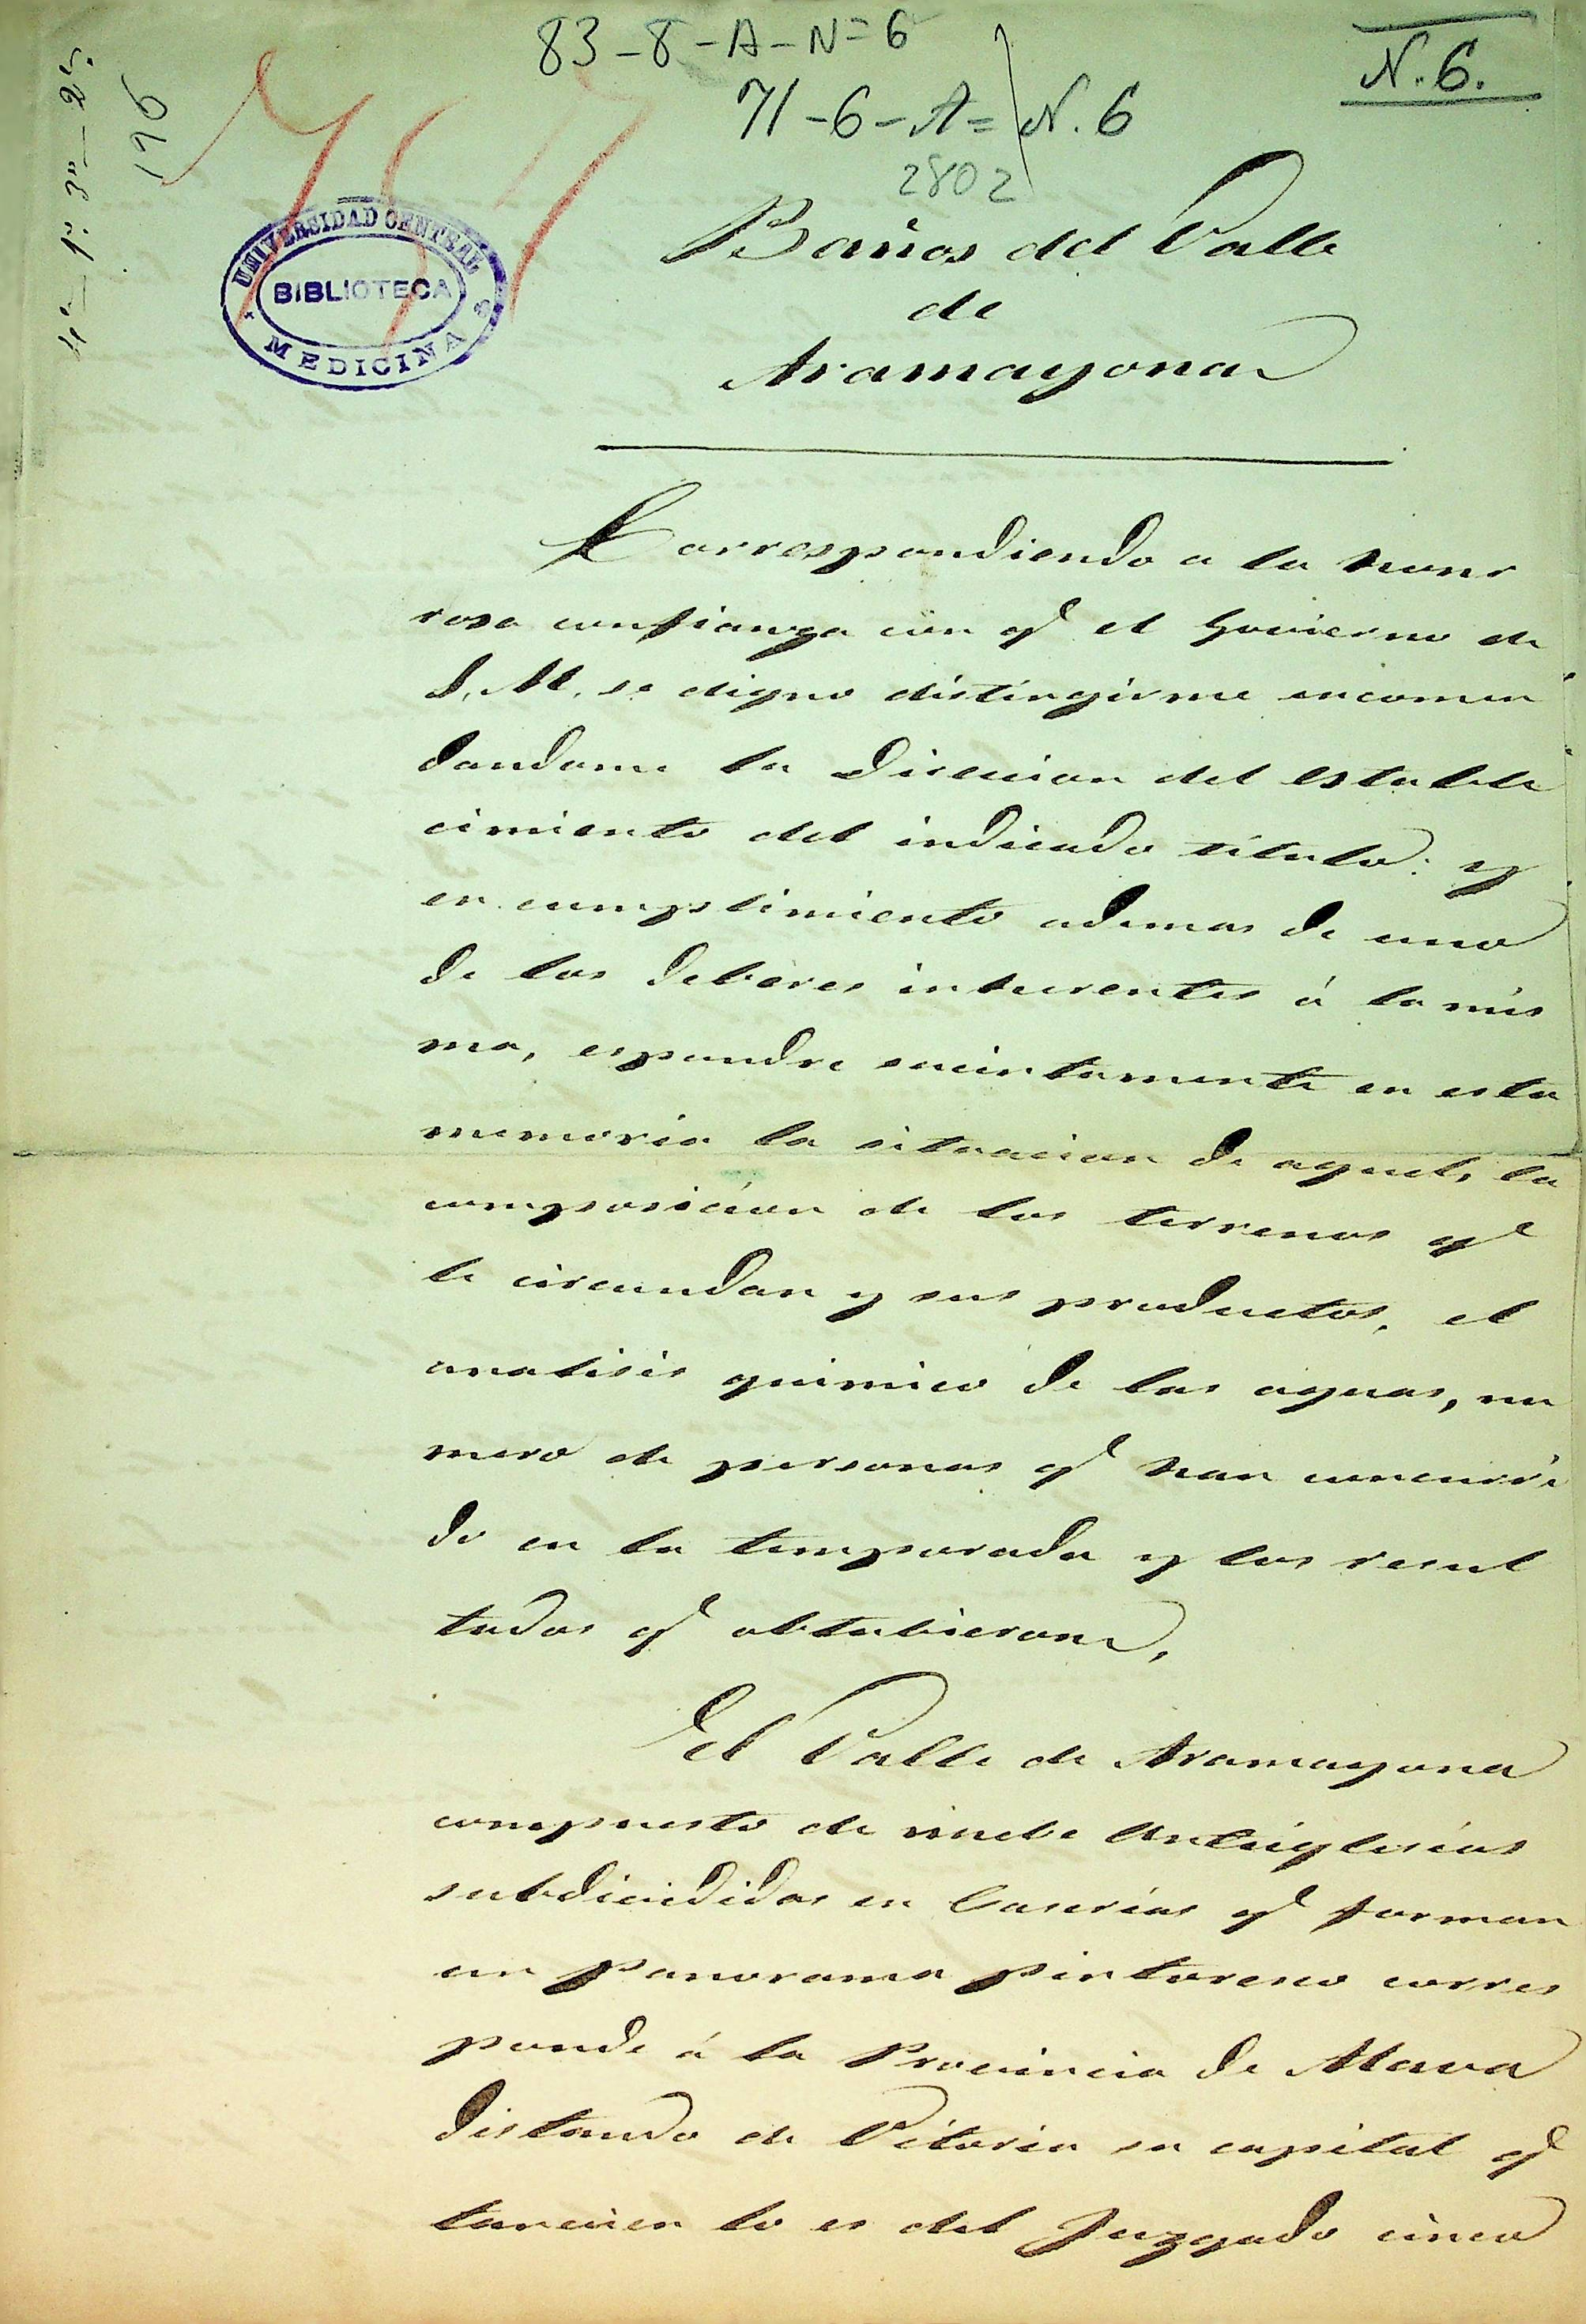 83-8-A-N=6
71-6-A= N. 6
N. 6.
2802
4ª-1ª-3ª-2ª
196
UNIVERSIDAD CENTRAL
BIBLIOTECA
MEDICINA
Baños del Valle
de
Aramayona
Correspondiendo a la hon
rosa confianza con qe el Govierno de
S. M. se digno distingirme encomen
dandome la Direccion del estable
cimiento del indicado título: y
en cumplimiento ademas de uno
de los deberes inherentes á la mis
ma, espondre sucintamente en esta
memoria la situacion de aquel, la
composición de los terrenos qe
le circundan y sus productos, el
analisis quimico de las aguas, nu
mero de personas qe han concurri
do en la temporada y los resul
tados qe obtubieron.
El Valle de Aramayona
compuesto de nuebe Anteiglesias
subdividido en Caserías qe forman
un Panorama Pintoresco corres
ponde á la Provincia de Alava
distando de Vitoria su capital qe
tanvien lo es del Juzgado cinco